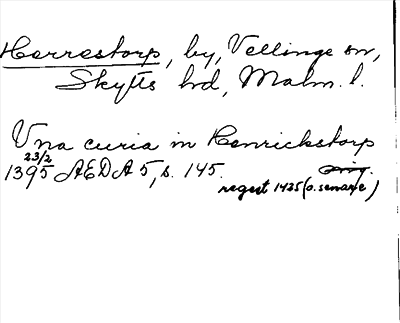 Herrestorp, by, Vellinge sn,
Skytts hd, Malm. l.
Una curia in Henrickstorp
23/2
1395 AEDA 5, s. 145. orig.
regest 1425 (o. senare)